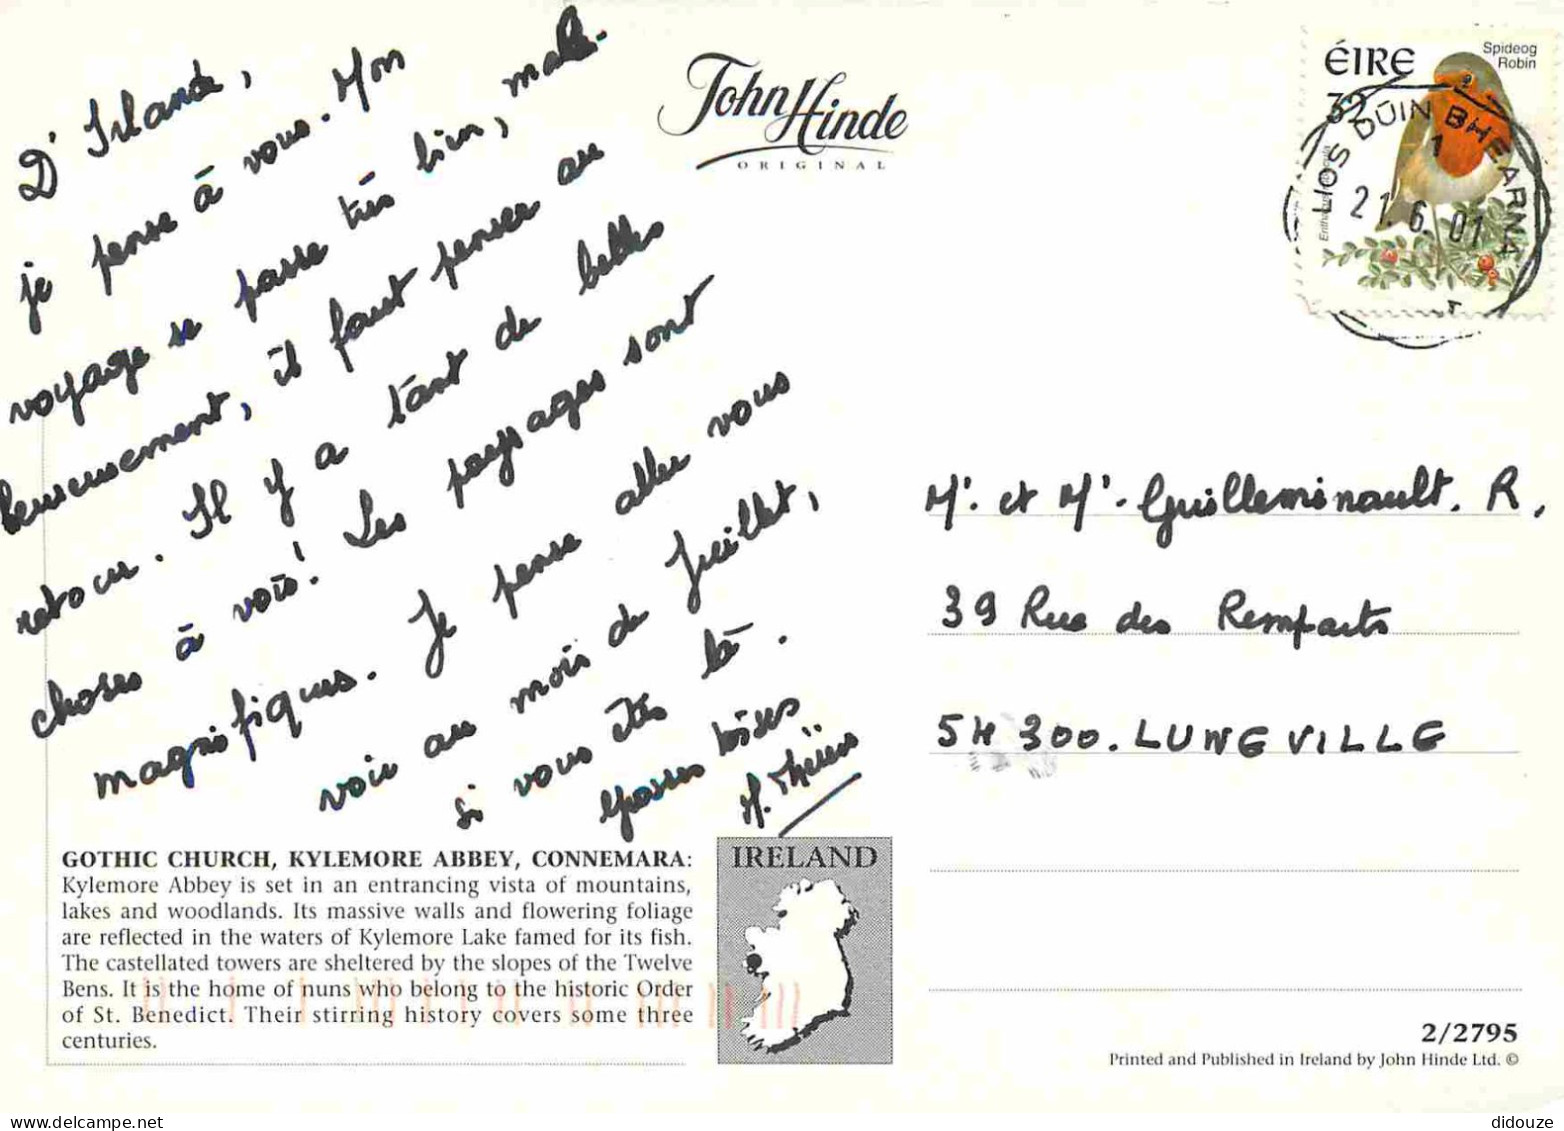 D'Irlande,
je pense à vous. Mon
voyage se passe très bien, malh-
heureusement, il faut penser au
retour. Il y a tant de belles
choses à voir! Les paysages sont
magnifiques. Je pense aller vous
voir au mois de Juillet,
si vous êtes là.
Grosses bises
John Hinde
ORIGINAL
ÉIRE
32
Spideog
Robin
LIOS DÚIN BHEARNA
1
21.6.01
Mr. et Mr. Guilleminault. R.
39 Rue des Remparts
54 300. LUNEVILLE
GOTHIC CHURCH, KYLEMORE ABBEY, CONNEMARA:
Kylemore Abbey is set in an entrancing vista of mountains,
lakes and woodlands. Its massive walls and flowering foliage
are reflected in the waters of Kylemore Lake famed for its fish.
The castellated towers are sheltered by the slopes of the Twelve
Bens. It is the home of nuns who belong to the historic Order
of St. Benedict. Their stirring history covers some three
centuries.
IRELAND
2/2795
Printed and Published in Ireland by John Hinde Ltd. ©
didouze